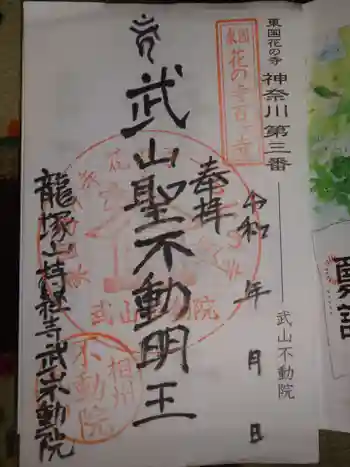 東国花の寺 神奈川 第三番 武山不動院
東国花の寺百ヶ寺
奉拝
令和 年 月 日
武山聖不動明王
武山不動院
相州
不動院
龍塚山持経寺武山不動院